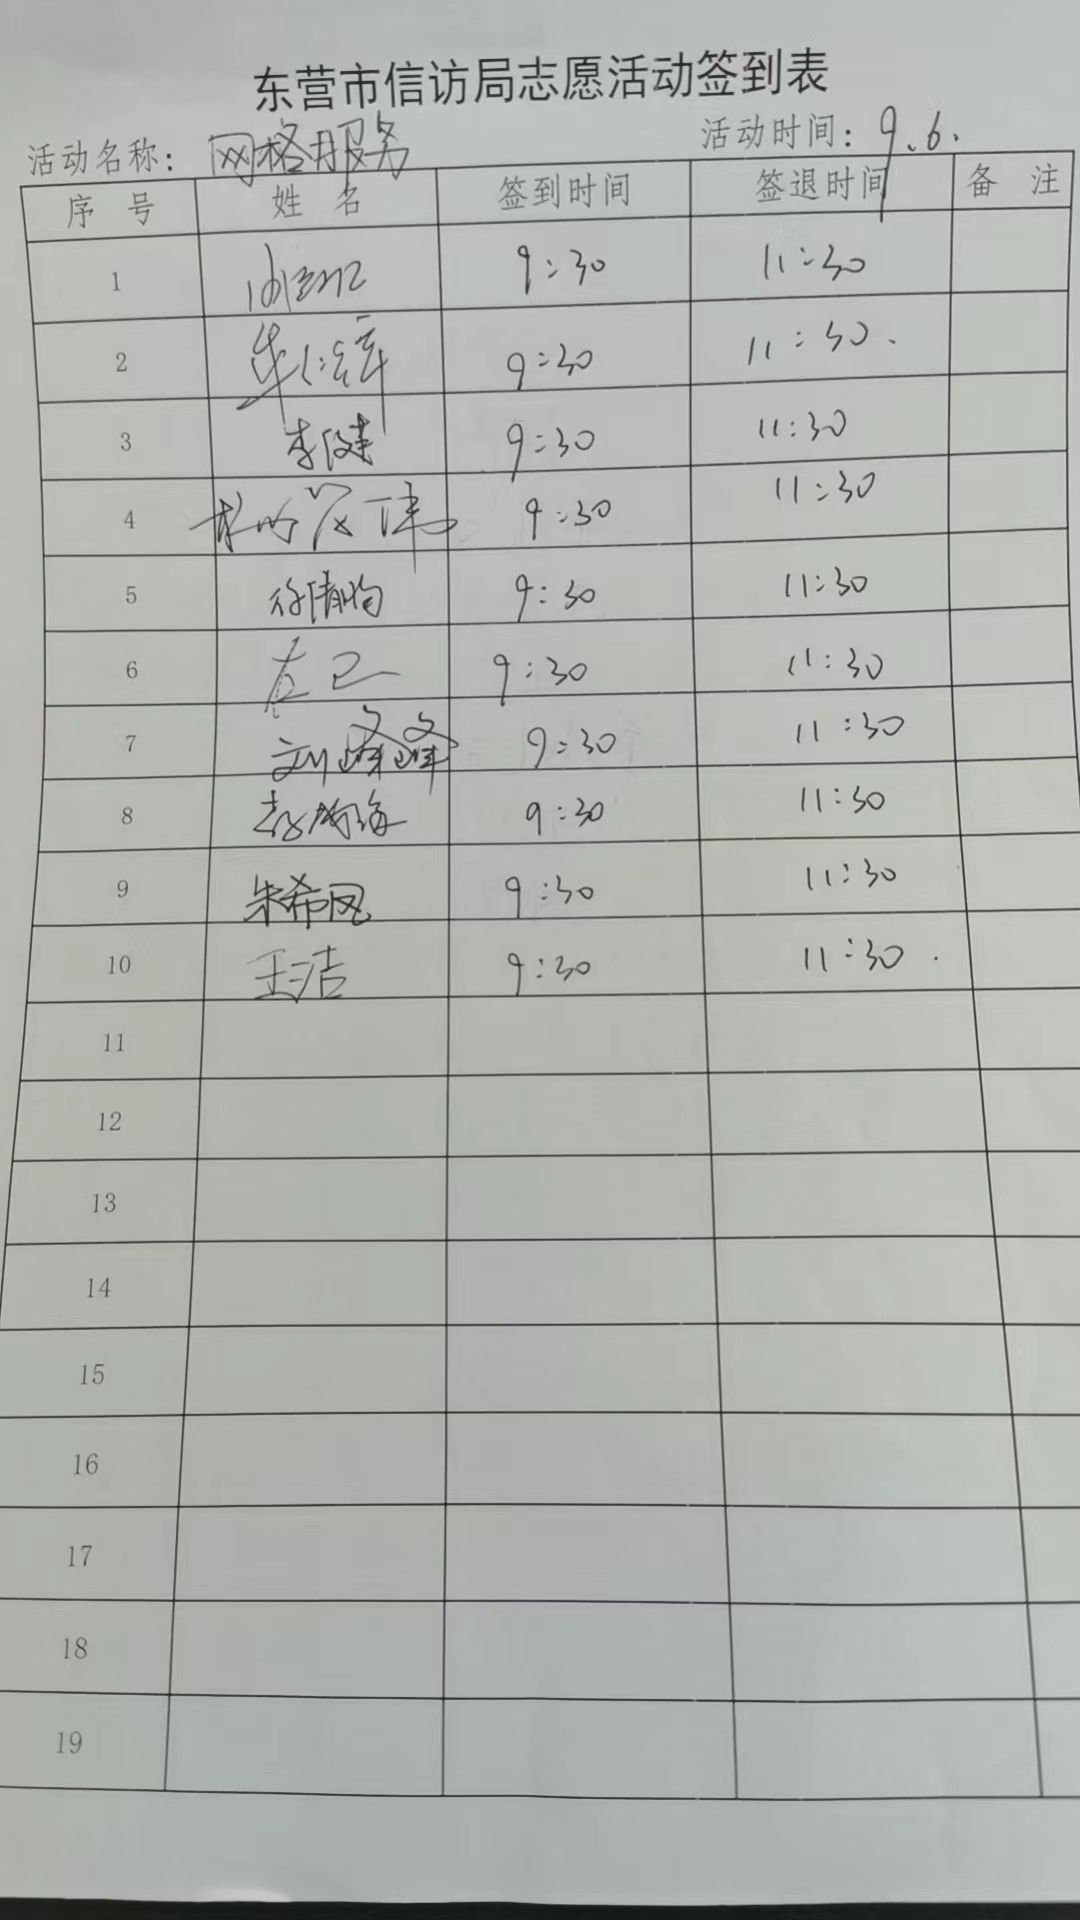 东营市信访局志愿活动签到表
活动名称：网格服务 活动时间：9.6.
序 号 姓 名 签到时间 签退时间 备 注
1 9:30 11:30
2 9:30 11:30.
3 李健 9:30 11:30
4 9:30 11:30
5 徐倩昀 9:30 11:30
6 9:30 11:30
7 刘峰峰 9:30 11:30
8 9:30 11:30
9 朱希凤 9:30 11:30
10 王洁 9:30 11:30.
11
12
13
14
15
16
17
18
19